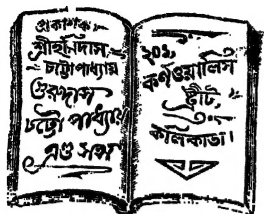 প্রকাশক
শ্রীহরিদাস
চট্টোপাধ্যায়
গুরুদাস
চট্টোপাধ্যায়
এণ্ড সন্স
২০১,
কর্ণওয়ালিস
স্ট্রীট,
কলিকাতা।